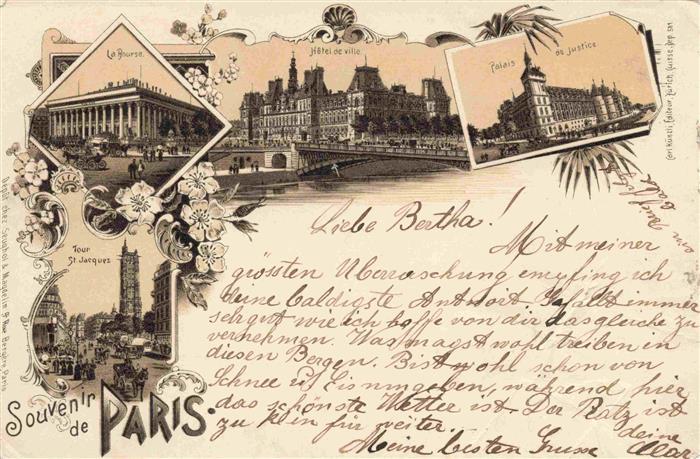 La Bourse.
Hôtel de ville.
Palais de justice
Carl Künzli, Éditeur, Zürich, Suisse, Dép. 521
Tour
St. Jacques
Souvenir
de PARIS.
Liebe Bertha!
Mit meiner
grössten Überraschung empfing ich
deine baldigste Antwort. Gefällt immer
sehr gut wie ich hoffe von dir dasgleiche zu
vernehmen. Was magst wohl treiben in
diesen Bergen. Bist wohl schon von
Schnee u. Eis umgeben, während hier
das schönste Wetter ist. Der Platz ist
zu klein für weiter.
Meine besten Grüsse deine